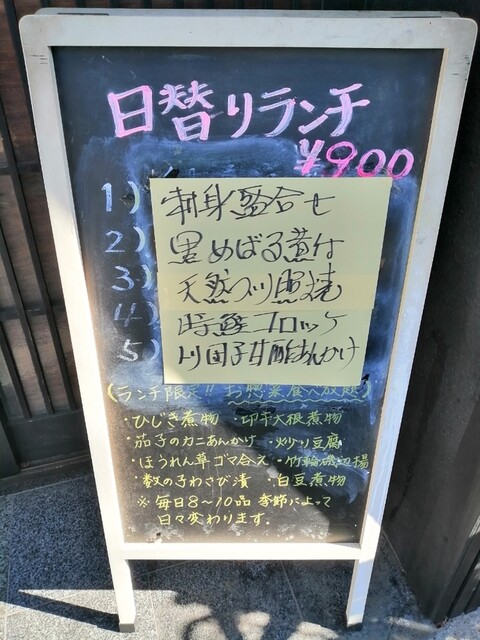 日替りランチ
¥900
1) 刺身盛合せ
2) 黒めばる煮付
3) 天然ブリ照焼
4) 時鮭コロッケ
5) 肉団子甘酢あんかけ
(ランチ限定!! お惣菜食べ放題)
・ひじき煮物 ・切干大根煮物
・茄子のカニあんかけ ・炒り豆腐
・ほうれん草ゴマ合え ・竹輪磯辺揚
・数の子わさび漬 ・白豆煮物
※毎日8〜10品 季節によって
日々変わります。